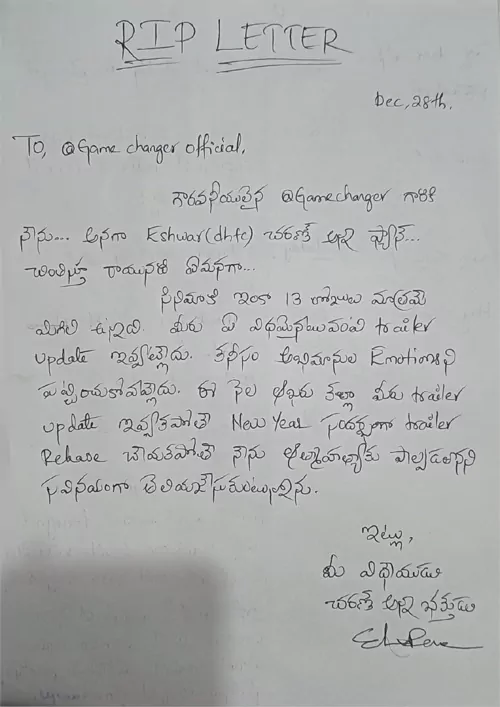 RIP LETTER
Dec, 28th.
To, @Game changer official,
గౌరవనీయులైన @Gamechanger గారికి
నేను... అనగా Eshwar(dhfc) చరణ్ అన్న ఫ్యాన్...
చింతిస్తూ రాయునది ఏమనగా...
సినిమాకి ఇంకా 13 రోజులు మాత్రమే
మిగిలి ఉన్నది. మీరు ఏ విధమైనటువంటి trailer
update ఇవ్వట్లేదు. కనీసం అభిమానుల Emotionsని
పట్టించుకోవట్లేదు. ఈ నెల ఆఖరు కల్లా మీరు trailer
update ఇవ్వకపోతే New Year సందర్భంగా trailer
Release చేయకపోతే నేను ఆత్మహత్యకు పాల్పడతానని
సవినయంగా తెలియజేసుకుంటున్నాను.
ఇట్లు,
మీ విధేయుడు
చరణ్ అన్న భక్తుడు